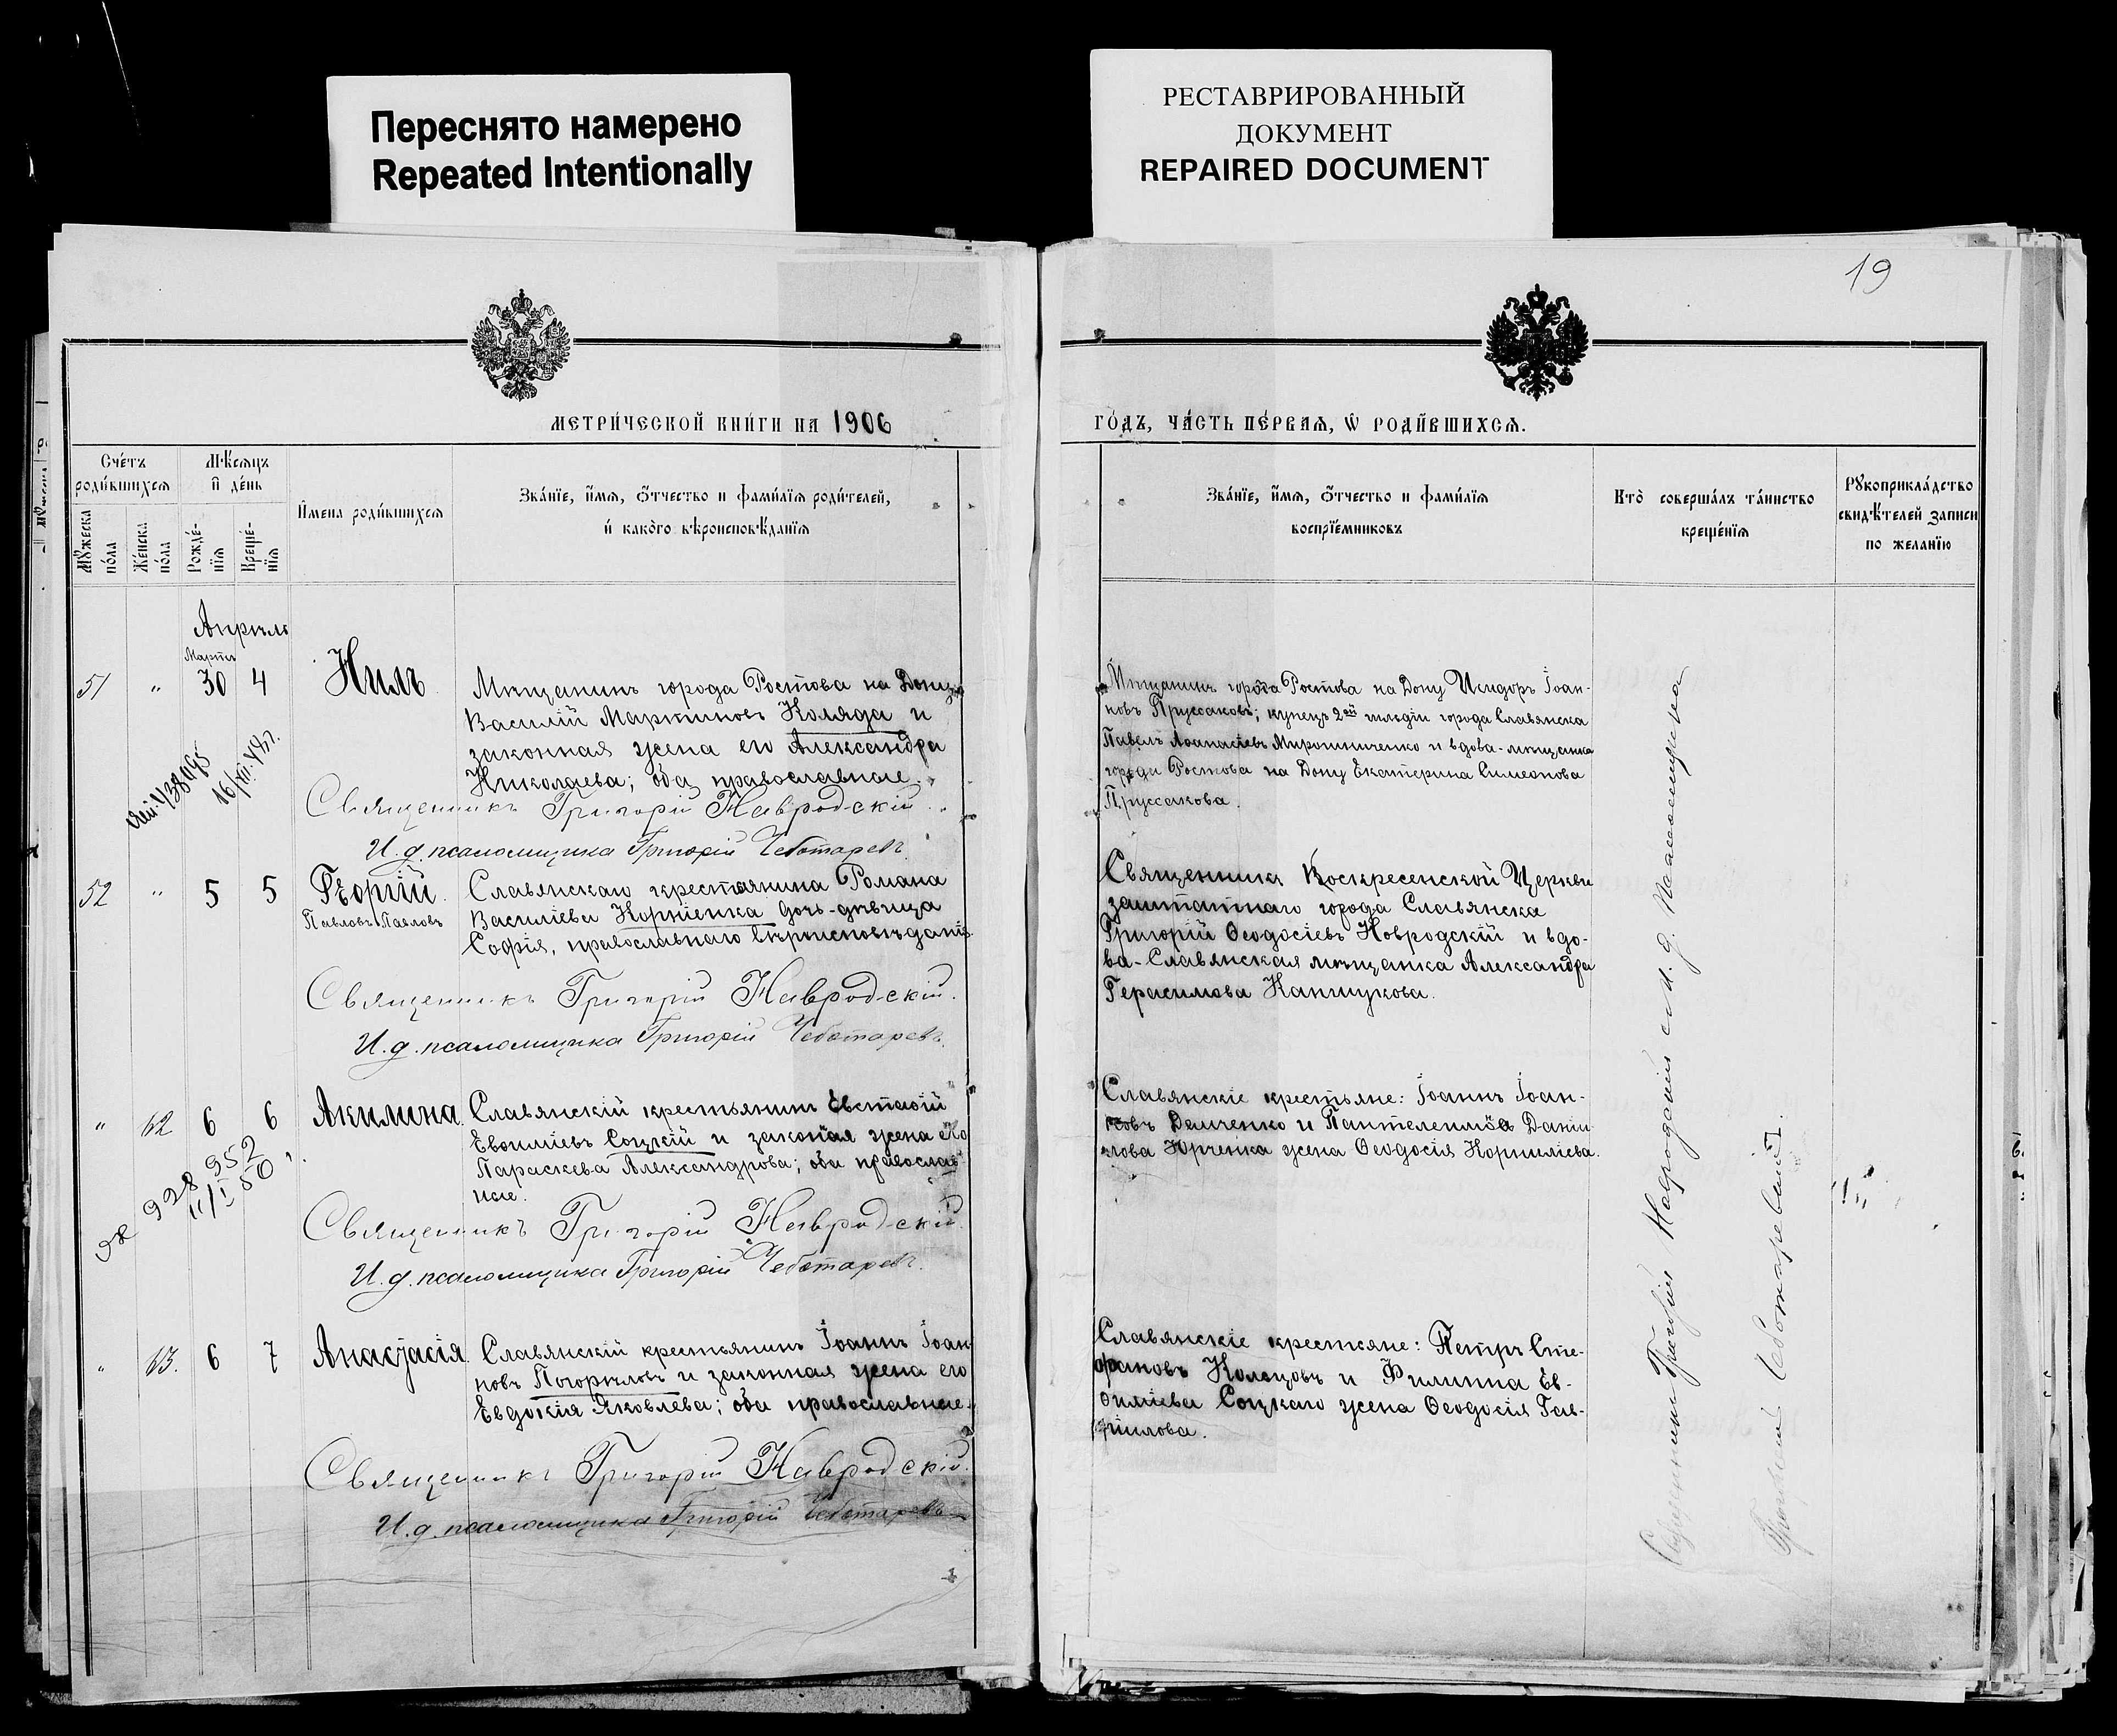 Переснято намерено
Repeated Intentionally
РЕСТАВРИРОВАННЫЙ
ДОКУМЕНТ
REPAIRED DOCUMENT
19
МЕТРИ́ЧЕСКОЙ КНИ́ГИ НА 1906
ГО́ДЪ, ЧА́СТЬ ПЕ́РВАѦ, Ѡ҆ РОДИ́ВШИХСѦ.
Сче́тъ
роди́вшихсѧ
Мѣ́сѧцъ
и҆ де́нь
Мꙋ́жеска
по́ла
Же́нска
по́ла
Рожде́-
нїѧ
Креще́-
нїѧ
И҆мена роди́вшихсѧ
Зва́нїе, и҆́мѧ, ѻ҆́тчество и фами́лїѧ роди́телей,
и҆ како́го вѣроисповѣ́данїѧ
Зва́нїе, и҆́мѧ, ѻ҆́тчество и фами́лїѧ
воспрїе́мниковъ
Кто̀ соверша́лъ та́инство
креще́нїѧ
Рꙋкоприкла́дство
свидѣ́телей записи
по жела́нїю
Апрѣль
Марта
51 " 30 4 Нилъ
Мѣщанинъ города Ростова на Дону
Василій Мартиновъ Коляда и
законная жена его Александра
Николаева; оба православные.
Священникъ Григорій Навродскій.
И. д. псаломщика Григорій Чеботаревъ.
Мѣщанинъ города Ростова на Дону Исидоръ Іоан-
новъ Пруссаковъ; купецъ 2ой гильдіи города Славянска
Павелъ Аѳанасіевъ Мирошниченко и вдова-мѣщанка
города Ростова на Дону Екатерина Симеонова
Пруссакова.
52 " 5 5 Георгій.
Павловъ Павловъ
Славянскаго крестьянина Романа
Василіева Корніенка дочь-дѣвица
Софія, православнаго вѣроисповѣданія.
Священникъ Григорій Навродскій.
И. д. псаломщика Григорій Чеботаревъ.
Священникъ Воскресенской Церкви
заштатнаго города Славянска
Григорій Ѳеодосіевъ Новродскій и вдо-
ва-Славянская мѣщанка Александра
Герасимова Канищукова.
" 62 6 6 Акилина.
Славянскій крестьянинъ Евстаѳій
Евѳиміевъ Соцкій и законая жена его
Параскева Александрова; оба православ
ные.
928 952
11/I 50
Священникъ Григорій Навродскій.
И. д. псаломщика Григорій Чеботаревъ.
Славянскіе крестьяне: Іоаннъ Іоан-
новъ Демченко и Пантелеимона Даніи
лова Юрченка жена Ѳеодосія Корниліева.
" 63. 6 7 Анастасія.
Славянскій крестьянинъ Іоаннъ Іоан
новъ Погорѣловъ и законная жена его
Евдокія Яковлева; оба православные.
Священникъ Григорій Навродскій.
И. д. псаломщика Григорій Чеботаревъ
Славянскіе крестьяне: Петръ Сте-
фановъ Кольцовъ и Филиппа Ев-
ѳиміева Соцкаго жена Ѳеодосія Гав-
ріилова.
Священникъ Григорій Навродскій съ и. д. Псаломщика
Григоріемъ Чеботаревымъ.